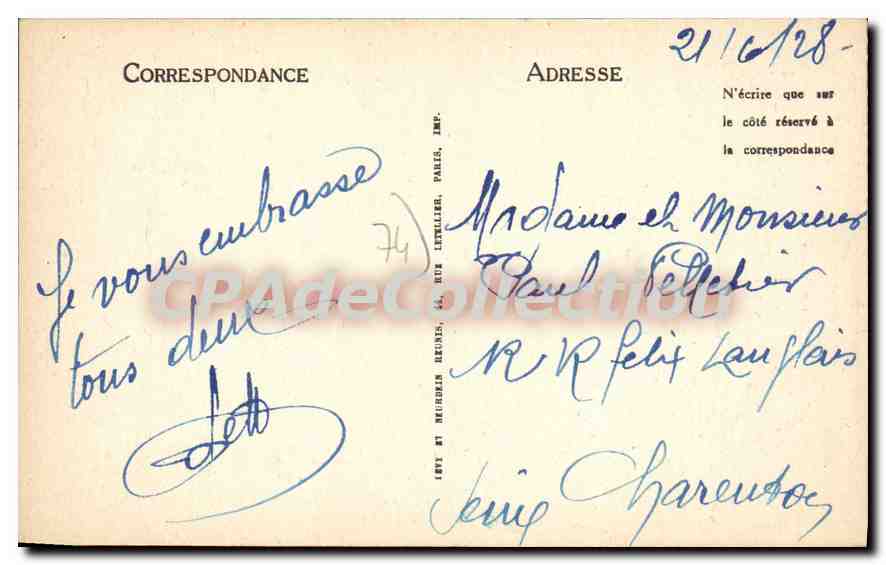 21/6/28-
CORRESPONDANCE
ADRESSE
N'écrire que sur
le côté réservé à
la correspondance
Je vous embrasse
tous deux
74
LÉVY ET NEURDEIN RÉUNIS, 44, RUE LETELLIER, PARIS, IMP.
Madame et Monsieur
Paul Pelletier
R felix Langlais
Charenton
Seine
CPAdeCollection